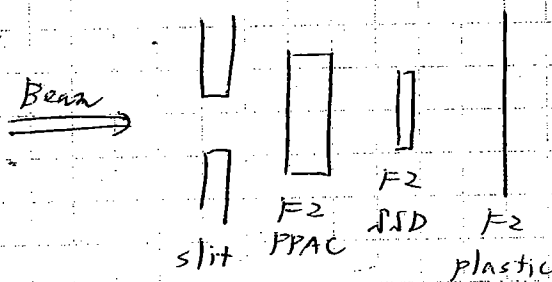 Beam
slit
F2
PPAC
F2
SSD
F2
plastic